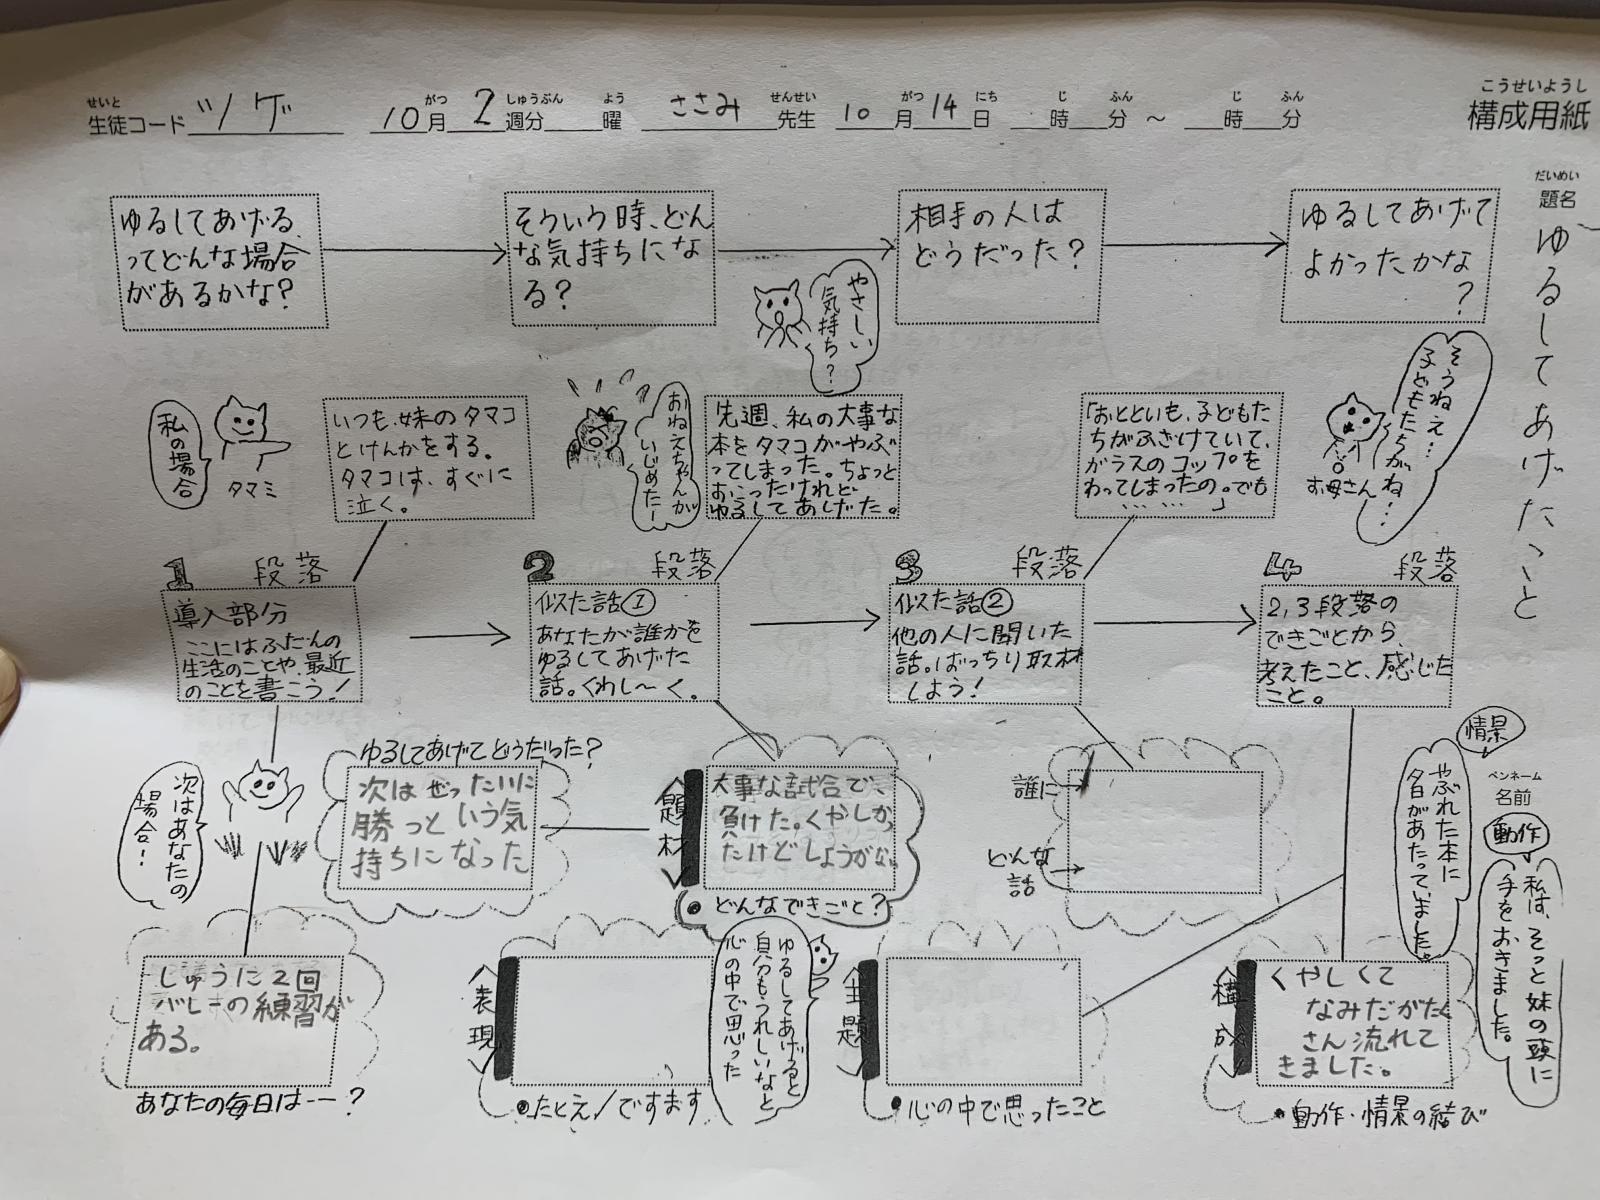 こうせいようし
構成用紙
せいと
生徒コード ツゲ
がつ しゅうぶん よう
10月 2週分 曜
せんせい
ささみ 先生
がつ にち じ ふん じ ふん
10月14日 時 分 ～ 時 分
だいめい
題名
ゆるしてあげたこと
ゆるしてあげる
ってどんな場合
があるかな?
そういう時、どん
な気持ちにな
る?
相手の人は
どうだった?
ゆるしてあげて
よかったかな
?
やさしい
気持ち?
そうねえ…
子どもたちがね…
お母さん
私の場合
タマミ
いつも、妹のタマコ
とけんかをする。
タマコは、すぐに
泣く。
おねえちゃんが
いじめたー
先週、私の大事な
本をタマコがやぶ
ってしまった。ちょっと
おこったけれど
ゆるしてあげた。
「おとといも、子どもた
ちがふざけていて、
ガラスのコップを
わってしまったの。でも
……」
1 段落
導入部分
ここにはふだんの
生活のことや、最近
のことを書こう!
2 段落
似た話①
あなたが誰かを
ゆるしてあげた
話。くわし〜く。
3 段落
似た話②
他の人に聞いた
話。ばっちり取材
しよう!
4 段落
2,3段落の
できごとから、
考えたこと、感じた
こと。
次はあなたの
場合!
ゆるしてあげてどうだった?
次はぜったいに
勝つという気
持ちになった
〈題材〉
大事な試合で、
負けた。くやしかっ
たけどしょうがない
●どんなできごと?
誰に→
どんな
話→
情景
やぶれた本に
名がたっていました。
ペンネーム
名前
動作
私は、そっと妹の頭に
手をおきました。
しゅうに2回
バレーの練習が
ある。
あなたの毎日は…?
〈表現〉
●たとえ/ですます
ゆるしてあげると
自分もうれしいなと
心の中で思った
〈主題〉
●心の中で思ったこと
〈構成〉
くやしくて
なみだがたく
さん流れて
きました。
●動作・情景の結び